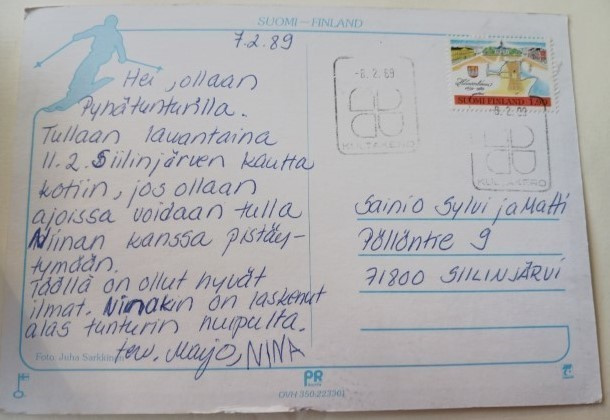 SUOMI – FINLAND
7.2.89
Hei, ollaan
Pyhätunturilla.
Tullaan lauantaina
11.2. Siilinjärven kautta
kotiin, jos ollaan
ajoissa voidaan tulla
Niinan kanssa pistäy-
tymään.
Täällä on ollut hyvät
ilmat. Ninakin on laskenut
alas tunturin huipulta.
terv. Marjo, NINA
Foto: Juha Sarkkinen
PR
OVH 350:223301
-8. 2. 89
KULTAKERO
SUOMI FINLAND 1,90
-8. 2. 89
KULTAKERO
Sainio Sylvi ja Matti
Pöllöntie 9
71800 SIILINJÄRVI